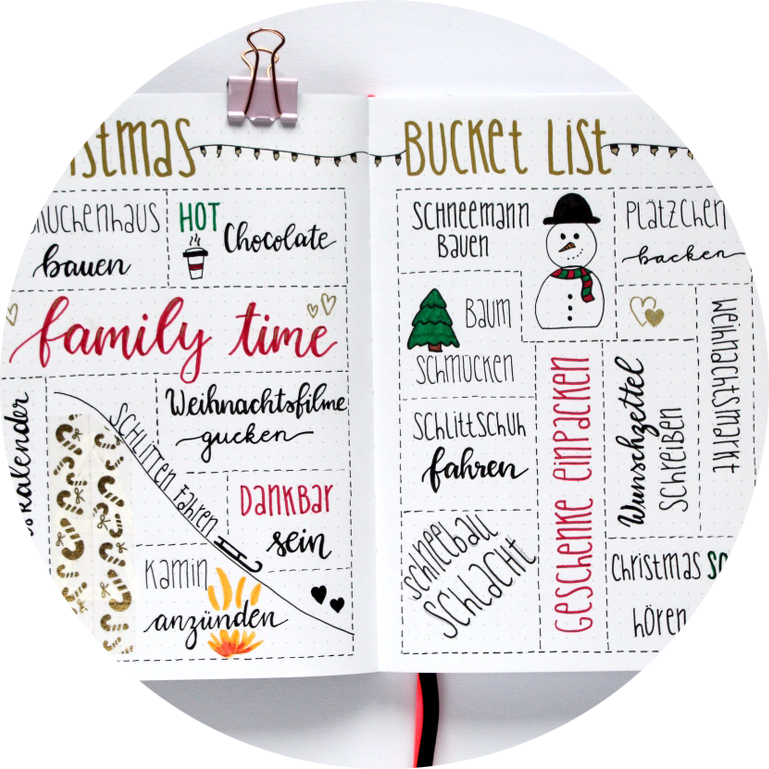 istmas BUCKET LIST
kuchenhaus
bauen
HOT
Chocolate
family time
kalender
SCHLITTEN fahren
Weihnachtsfilme
gucken
DANKBAR
sein
Kamin
anzünden
SCHNEEMANN
BAUEN
PLÄTZCHEN
backen
BAUM
SCHMÜCKEN
SCHLITTSCHUH
fahren
SCHNEEBALL
SCHLACHT
GESCHENKE EINPACKEN
Wunschzettel
SCHREIBEN
WEIHNACHTSMARKT
CHRISTMAS SO
HÖREN